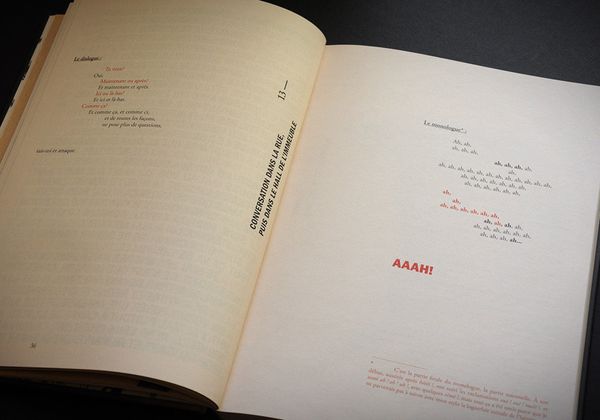 Le dialogue :
Tu veux?
Oui.
Maintenant ou après?
Et maintenant et après.
Ici ou là-bas?
Et ici et là-bas.
Comme ça?
Et comme ça, et comme ci,
et de toutes les façons,
ne pose plus de questions,
tais-toi et attaque.
36
13 —
CONVERSATION DANS LA RUE,
PUIS DANS LE HALL DE L'IMMEUBLE
Le monologue* :
Ah, ah,
ah, ah, ah,
ah, ah, ah, ah,
ah,
ah, ah, ah, ah, ah, ah, ah, ah,
ah, ah, ah, ah, ah, ah, ah,
ah, ah, ah, ah, ah,
ah,
ah,
ah, ah, ah, ah, ah, ah,
ah, ah, ah, ah,
ah, ah, ah, ah, ah,
ah, ah, ah, ah, ah,
ah, ah, ah, ah...
AAAH!
* C'est la partie finale du monologue, la partie universelle. À son